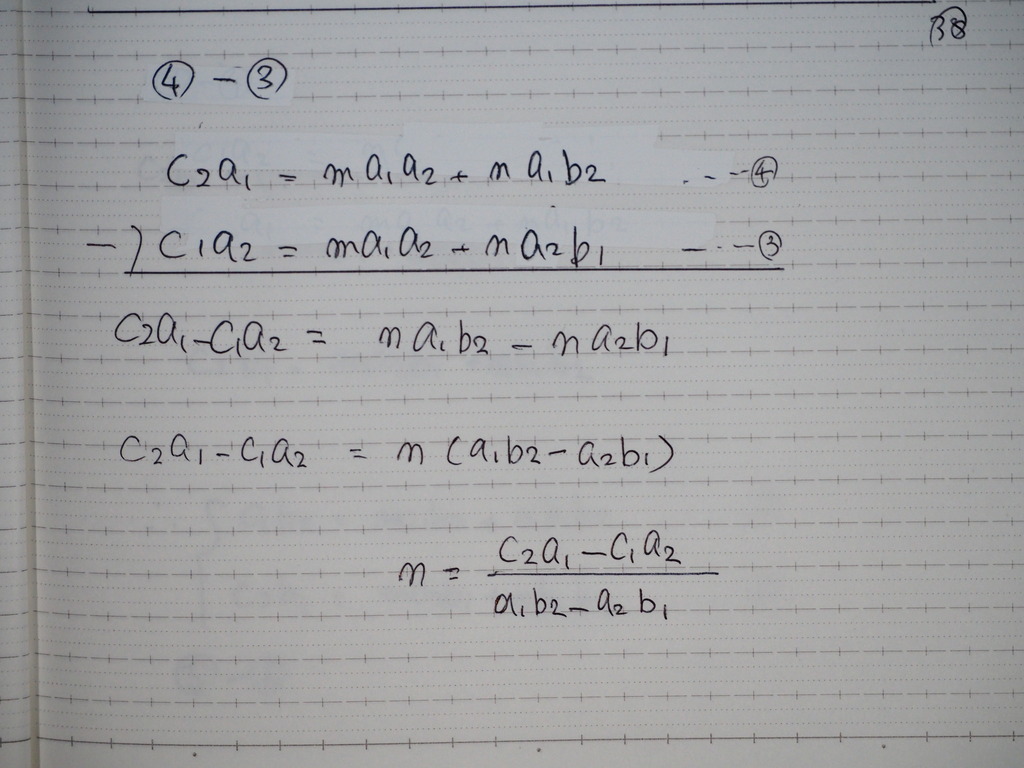 38
④ - ③
C2a1 = ma1a2 + na1b2 ---④
-) C1a2 = ma1a2 + na2b1 ---③
C2a1-C1a2 = na1b2 - na2b1
C2a1-C1a2 = n (a1b2-a2b1)
n = C2a1-C1a2
a1b2-a2b1